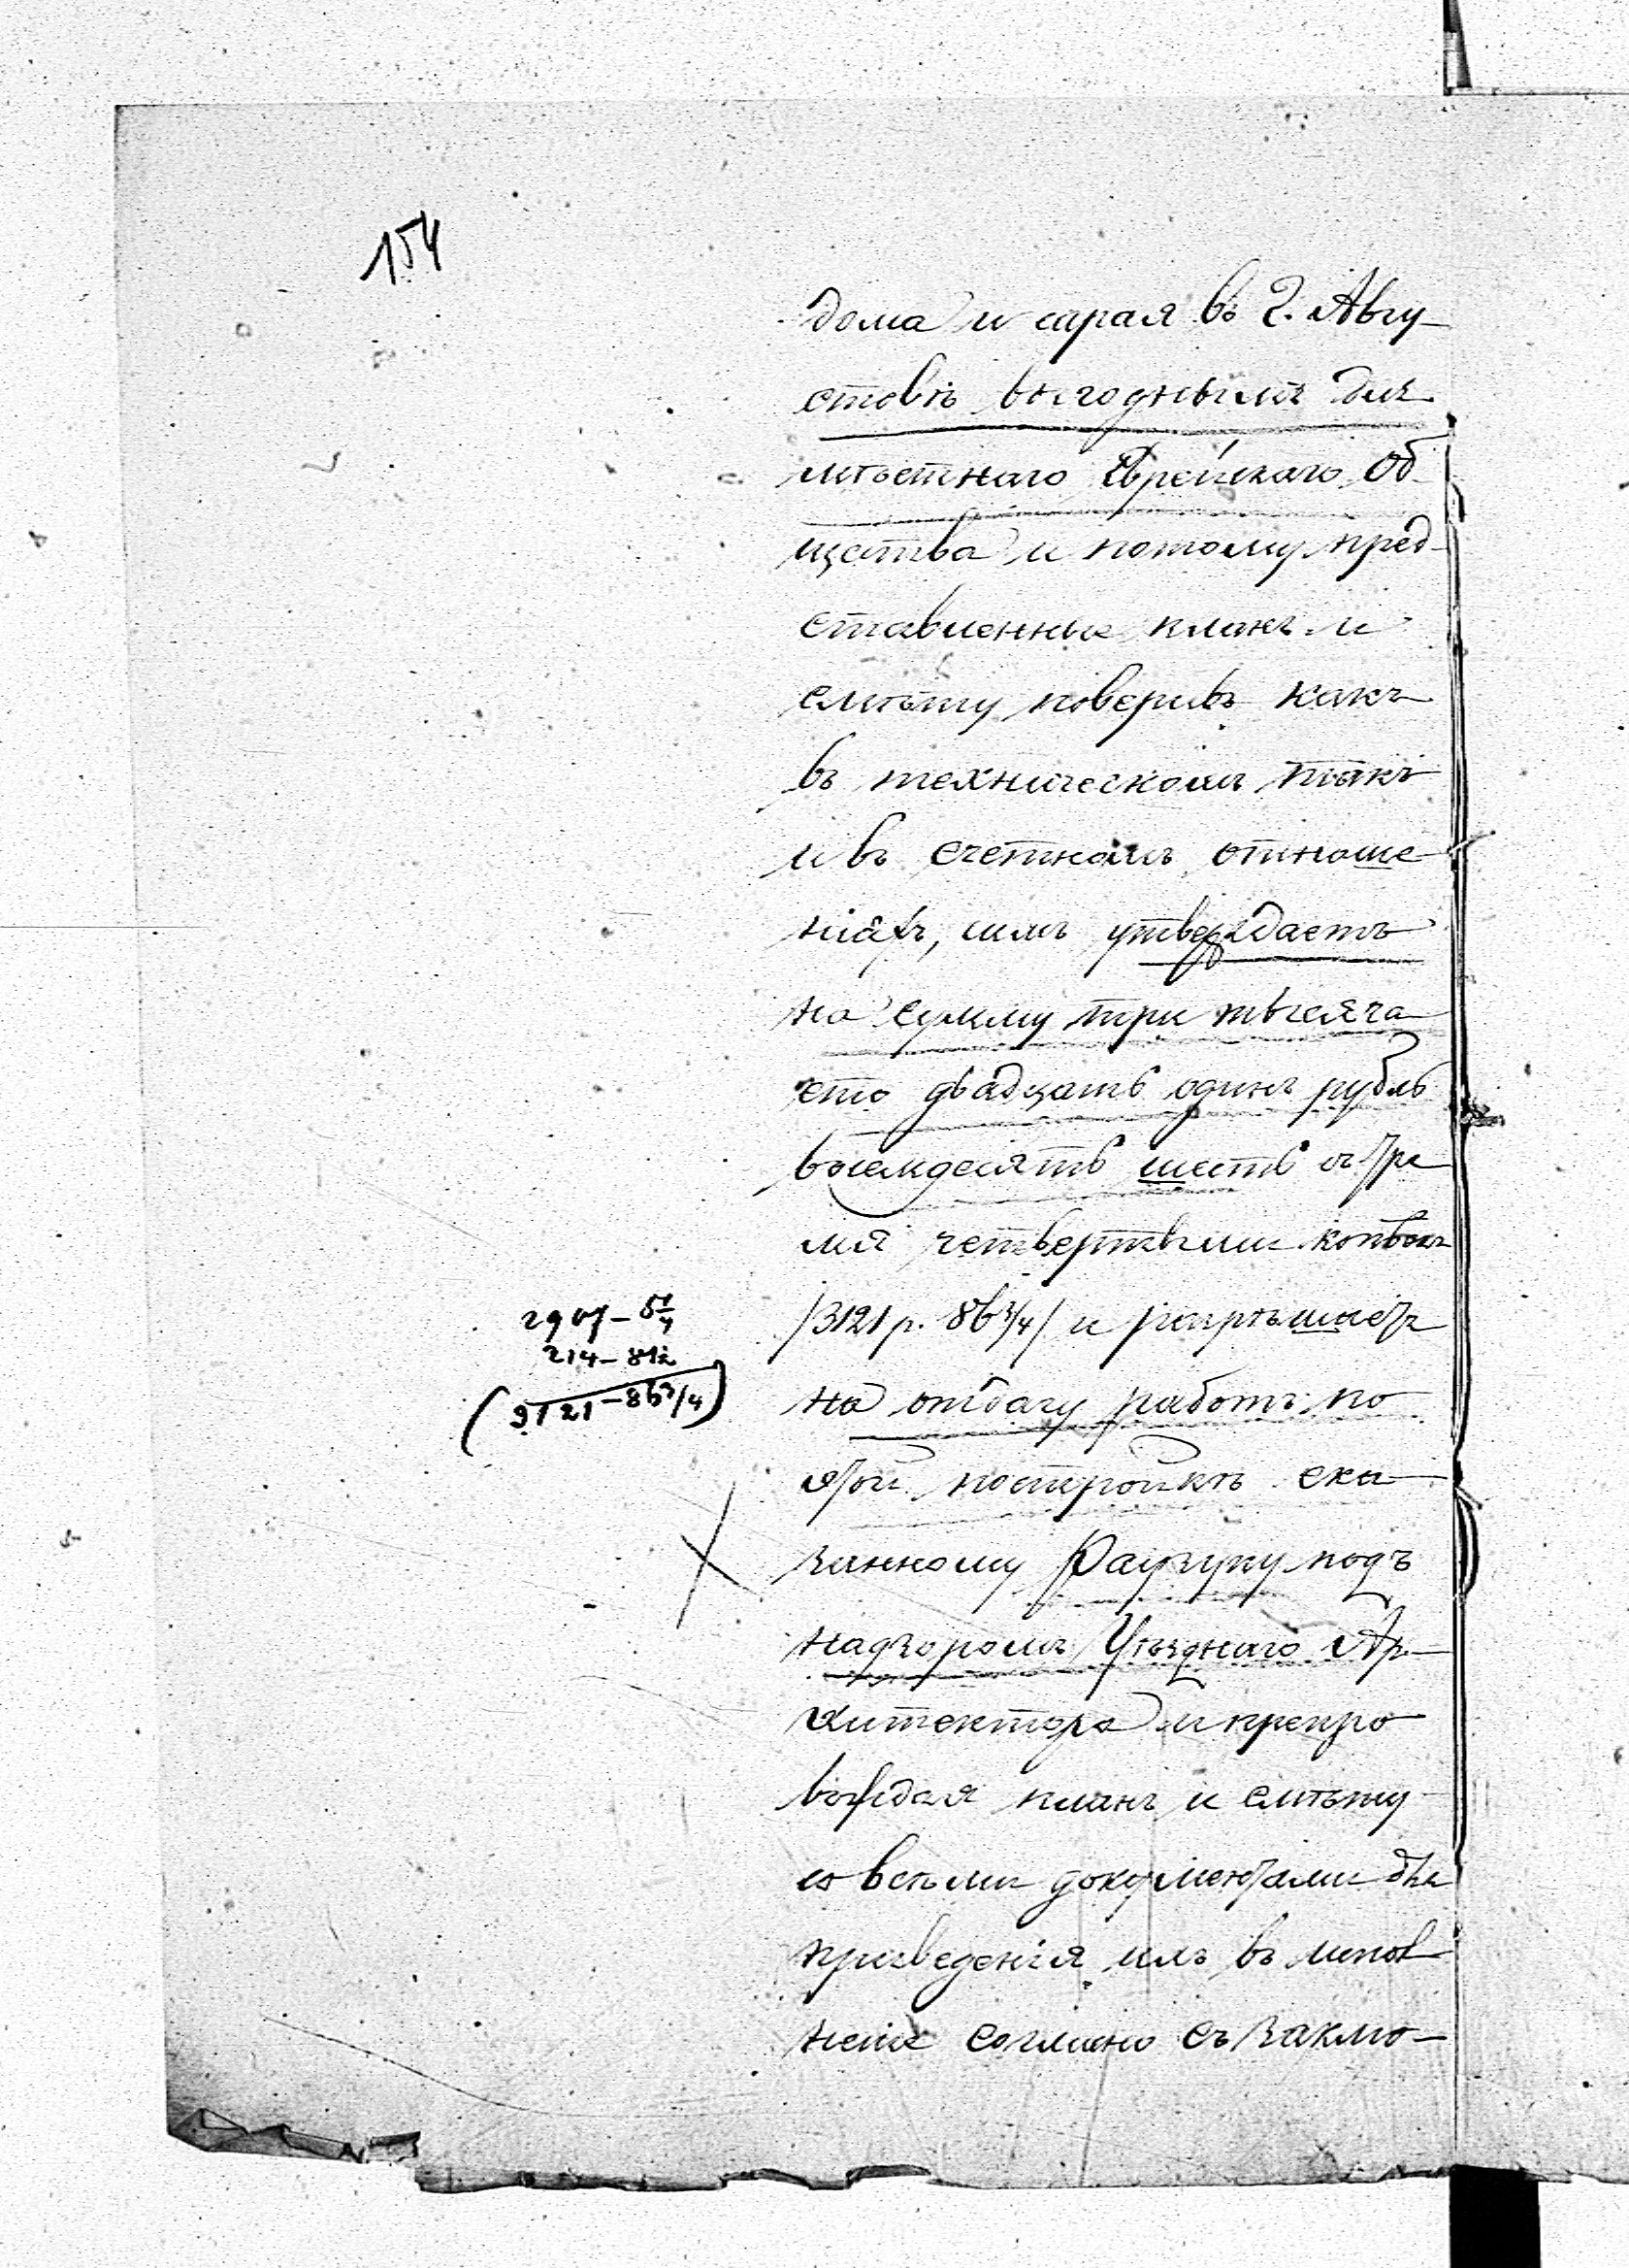 154
дома и сарая въ г. Авгу-
стовѣ выгоднымъ для
мѣстнаго Еврейскаго Об
щества и потому пред-
ставленные планъ и
смѣту поверивъ какъ
въ техническомъ такъ
и въ счетномъ отноше-
ніяхъ, утверждаетъ
на сумму три тысяча
сто двадцать одинъ рубль
восемдесять шесть съ тре
мя четвертьми копѣекъ
/3121 р. 86 3/4/ и разрѣшаетъ
2907 -
214 - 81½
(3121 - 86 3/4)
на отдачу работъ по
этой постройкѣ ска-
занному подъ
надзоромъ Уѣзднаго Ар-
хитектора и препро
вождая планъ и смѣту
со всѣми документами для
приведенія ихъ въ испол
неніе согласно съ заклю-